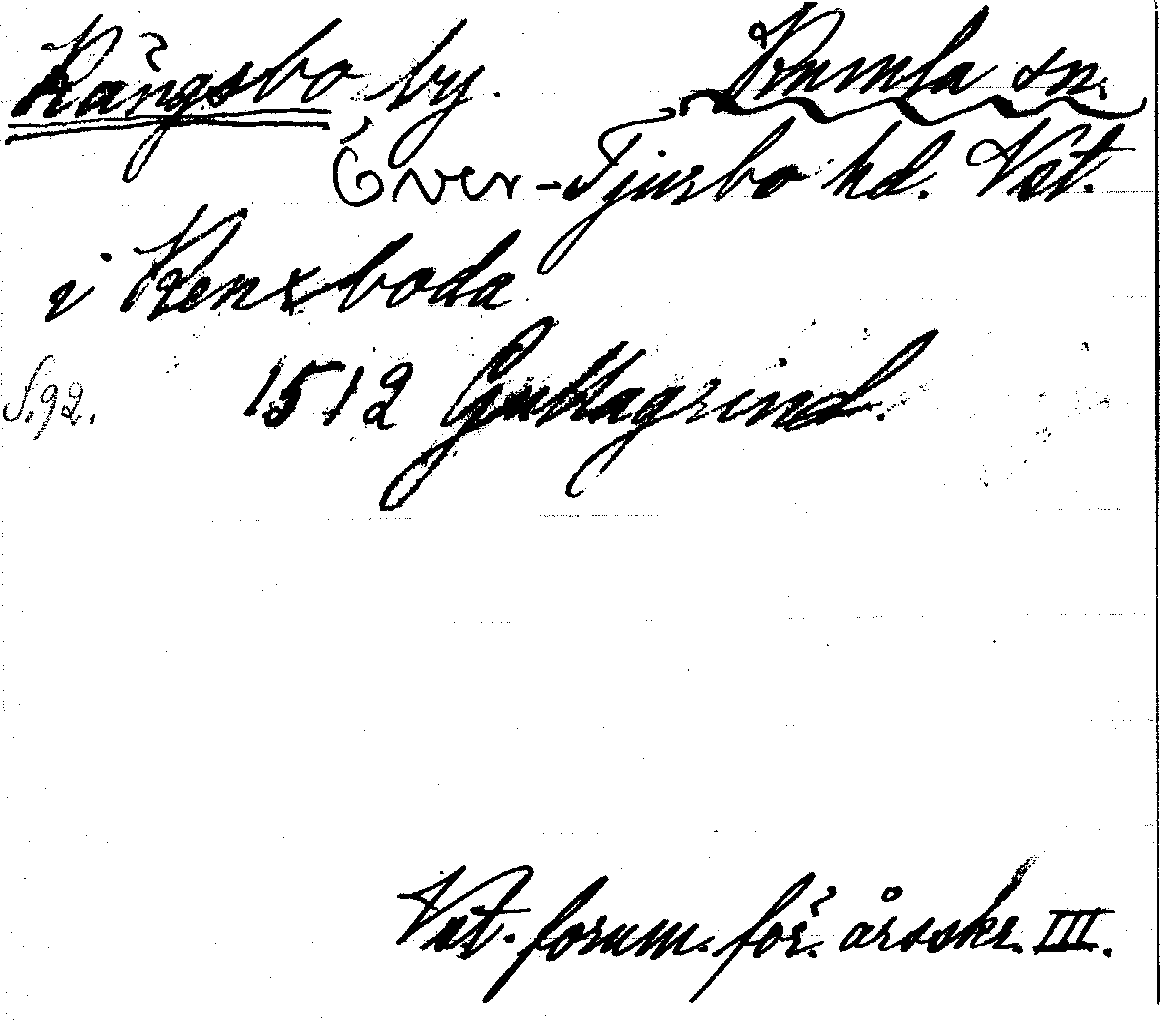 Rängsbo by. Kumla sn.
Över-Tjurbo hd. Vst.
i Renxboda
S.92. 1512 Guttagrind.
Vst. fornm. för. årsskr. III.